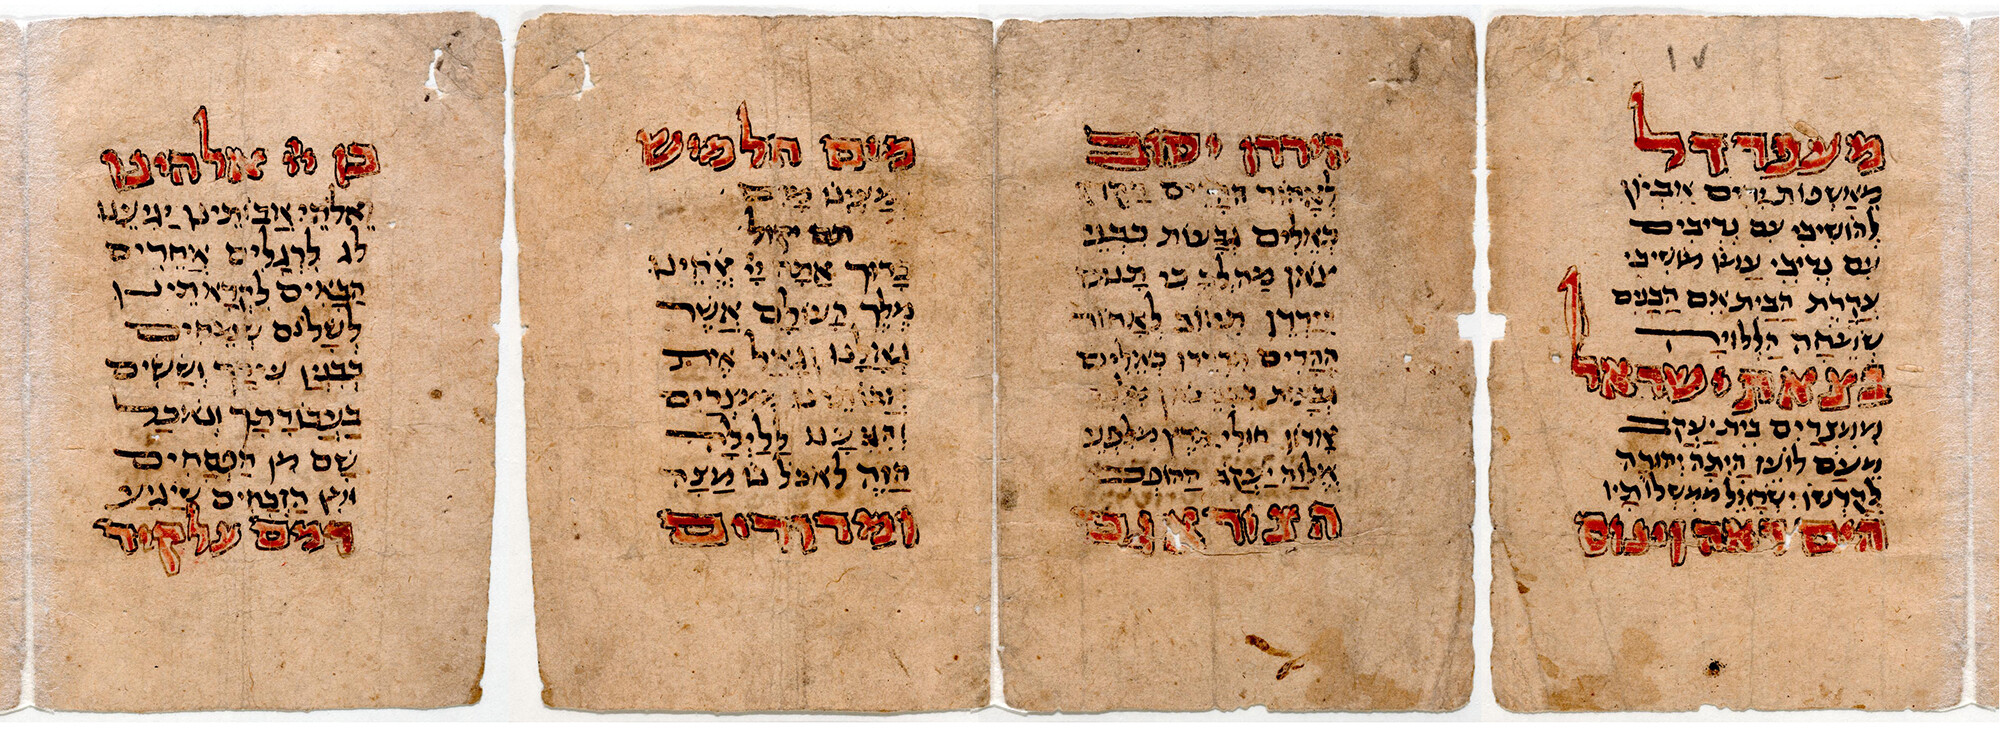 מעפר דל
מאשפות ירים אביון
להושיבי עם נדיבים
עם נדיבי עמו מושיבי
עקרת הבית אם הבנים
שמחה הללויה
בצאת ישראל
ממצרים בית יעקב
מעם לועז היתה יהודה
לקדשו ישראל ממשלותיו
הים ראה וינוס
הירדן יסוב
לאחור ההרים רקדו
כאילים גבעות כבני
צאן מה לך כי תנוס
הירדן תיסוב לאחור
ההרים תרקדו כאילים
גבעות כבני צאן
אדון חולי ארץ מלפני
אלוה יעקב ההופכי
הצור אגם
מים חלמיש
מעינו מים
תם יקול
ברוך אתה יי אלהינו
מלך העולם אשר
גאולנו וגאל את
אבותינו ממצרים
והגיענו ללילה
הזה לאכל בו מצה
ומרורים
כן יי אלהינו
ואלהי אבותינו יגיענו
לג לרגלים אחרים
הבאים לקראתינו
לשלום שמחים
בבנין עירך וששים
בעבודתך ונאכל
שם מן הפסחים
ומן הזבחים שיגיע
דמם על קיר